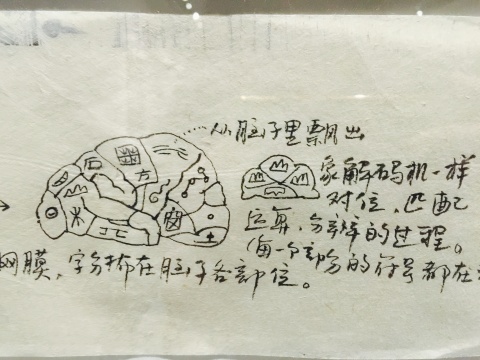 从脑子里飘出
象解码机一样
对位，匹配
运算，分辨的过程。
(每一个部分的符号都在
网膜，字分布在脑子各部位。